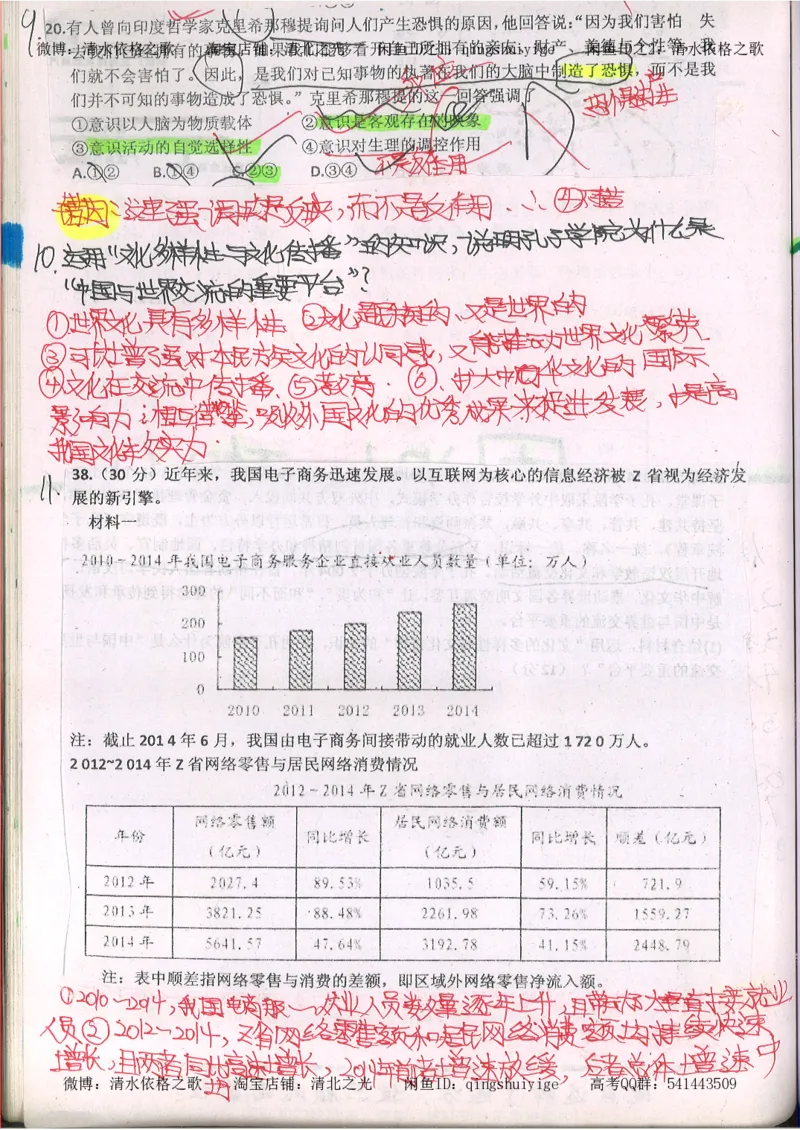 9. 20.有人曾向印度哲学家克里希那穆提询问人们产生恐惧的原因,他回答说:“因为我们害怕 失
微博:清水依格之歌 淘宝店铺:清北之光 闲鱼ID:qingshuiyige 闲鱼ID 清水依格之歌
们就不会害怕了。因此,是我们对已知事物的执著在我们的大脑中制造了恐惧,而不是我
们并不可知的事物造成了恐惧。”克里希那穆提的这一回答强调
①意识以人脑为物质载体 ②意识是客观存在的映象
③意识活动的自觉选择性 ④意识对生理的调控作用
不是反作用
A.①② B.①④ C.②③ D.③④
错因:这里强调的是反映,而不是反作用 ∴④不选
10.运用“文化多样性与文化传播”的知识,说明孔子学院为什么是
“中国与世界交流的重要平台”?
①世界文化具有多样性 ②文化是民族的、又是世界的
③可以增强对本民族文化的认同感,又能推动世界文化繁荣
④文化在交流中传播、⑤教育 ⑥、扩大中国文化的国际
影响力;相互借鉴,吸收外国文化的优秀成果来促进发展,提高
我国文化软实力
11. 38.(30 分)近年来,我国电子商务迅速发展。以互联网为核心的信息经济被 Z 省视为经济发
展的新引擎。
材料一
2010~2014年我国电子商务服务企业直接从业人员数量(单位:万人)
300
200
100
0
2010 2011 2012 2013 2014
注:截止 2014 年 6 月,我国由电子商务间接带动的就业人数已超过 1720 万人。
2012~2014 年 Z 省网络零售与居民网络消费情况
2012~2014年Z省网络零售与居民网络消费情况
年份 网络零售额(亿元) 同比增长 居民网络消费额(亿元) 同比增长 顺差(亿元)
2012年 2027.4 89.53% 1035.5 59.15% 721.9
2013年 3821.25 88.48% 2261.98 73.26% 1559.27
2014年 5641.57 47.64% 3192.78 41.15% 2448.79
注:表中顺差指网络零售与消费的差额,即区域外网络零售净流入额。
①2010~2014,我国电商服~从业人员数量逐年上升,且带动大量间接就业
人员②2012~2014,Z省网络零售额和居民网络消费额均持续快速
增长,且两者同比高速增长,2014年前者增速放缓,后者总体增速中
微博:清水依格之歌 淘宝店铺:清北之光 闲鱼ID:qingshuiyige 高考QQ群:541443509